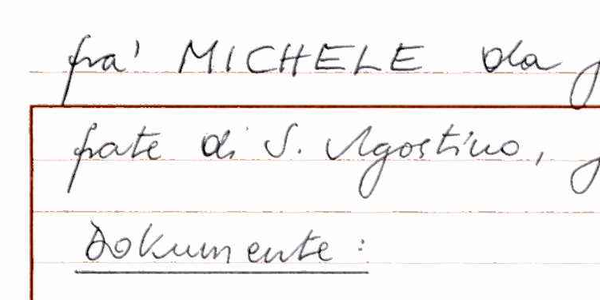 fra' MICHELE da
frate di S. Agostino,
Dokumente: